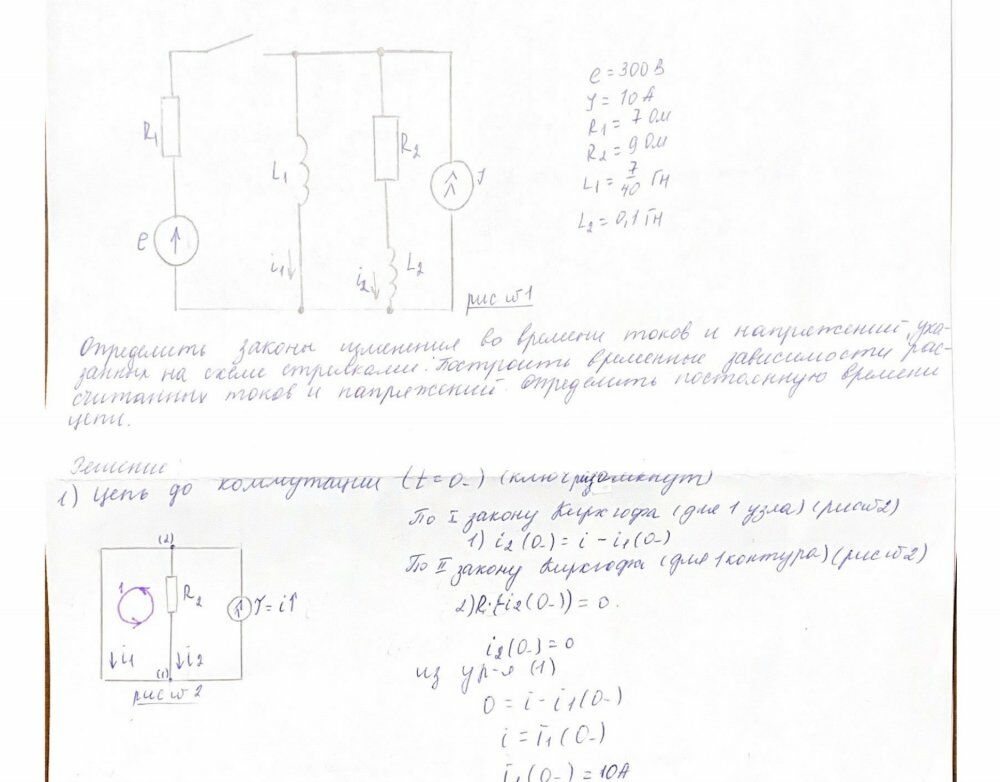 R₁
e
L₁
i₁
R₂
i₂
L₂
J
рис №1
e = 300 В
J = 10 А
R₁ = 7 Ом
R₂ = 9 Ом
L₁ = 7/40 Гн
L₂ = 0,1 Гн
Определить законы изменения во времени токов и напряжений, ука-
занных на схеме стрелками. Построить временные зависимости рас-
считанных токов и напряжений. Определить постоянную времени
цепи.
Решение:
1) Цепь до коммутации (t = 0₋) (ключ разомкнут)
По I закону Кирхгофа (для 1 узла) (рис №2)
1) i₂(0₋) = i - i₁(0₋)
По II закону Кирхгофа (для 1 контура) (рис №2)
i₂(0₋) = 0
из ур-я (1)
0 = i - i₁(0₋)
i = i₁(0₋)
i₁(0₋) = 10А
(2)
1
R₂
J = i
i₁
i₂
(1)
рис №2